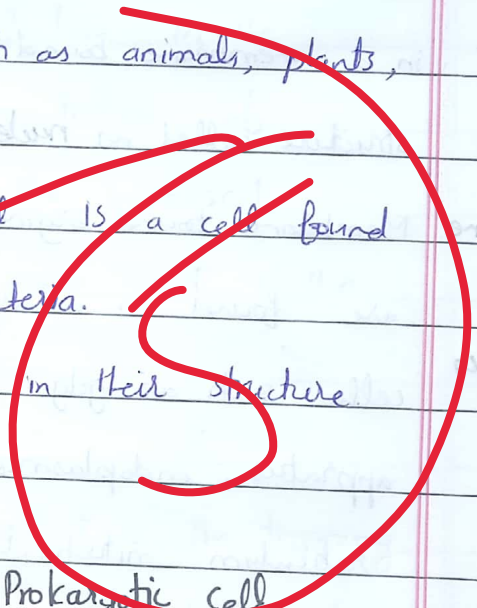 as animals, plants,
is a cell found
teria.
in their structure.
5
Prokaryotic cell